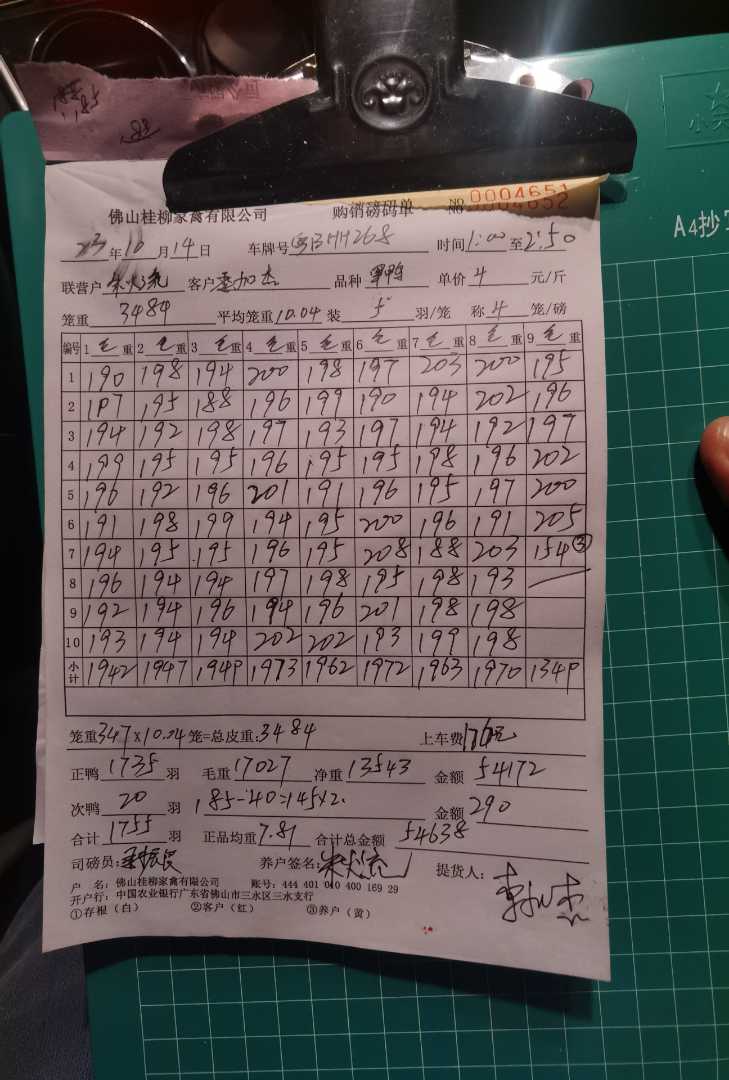 185
0004651
佛山桂柳家禽有限公司 购销磅码单 NO 0004652
A4抄写
23年10月14日 车牌号 粤BHH268 时间1:00至2:50
联营户 客户 品种 单价 4 元/斤
笼重 3484 平均笼重10.04 装 5 羽/笼 称 4 笼/磅
编号 1 毛重 2 毛重 3 毛重 4 毛重 5 毛重 6 毛重 7 毛重 8 毛重 9 毛重
1 190 198 194 200 198 197 203 200 195
2 197 195 188 196 199 190 194 202 196
3 194 192 198 197 193 197 194 192 197
4 199 195 195 196 195 195 198 196 202
5 196 192 196 201 191 196 195 197 200
6 191 198 199 194 195 200 196 191 205
7 194 195 195 196 195 208 188 203 154③
8 196 194 194 197 198 195 198 193
9 192 194 196 194 196 201 198 198
10 193 194 194 202 202 193 199 198
小计 1942 1947 1949 1973 1962 1972 1963 1970 1349
笼重347×10.04笼=总皮重:3484 上车费176元
正鸭 1735 羽 毛重 17027 净重 13543 金额 54172
次鸭 20 羽 185-40=145×2. 金额 290
合计 1755 羽 正品均重 7.81 合计总金额 54638
司磅员: 养户签名: 提货人:
户 名: 佛山桂柳家禽有限公司 账号: 444 401 040 400 169 29
开户行: 中国农业银行广东省佛山市三水区三水支行
①存根（白） ②客户（红） ③养户（黄）